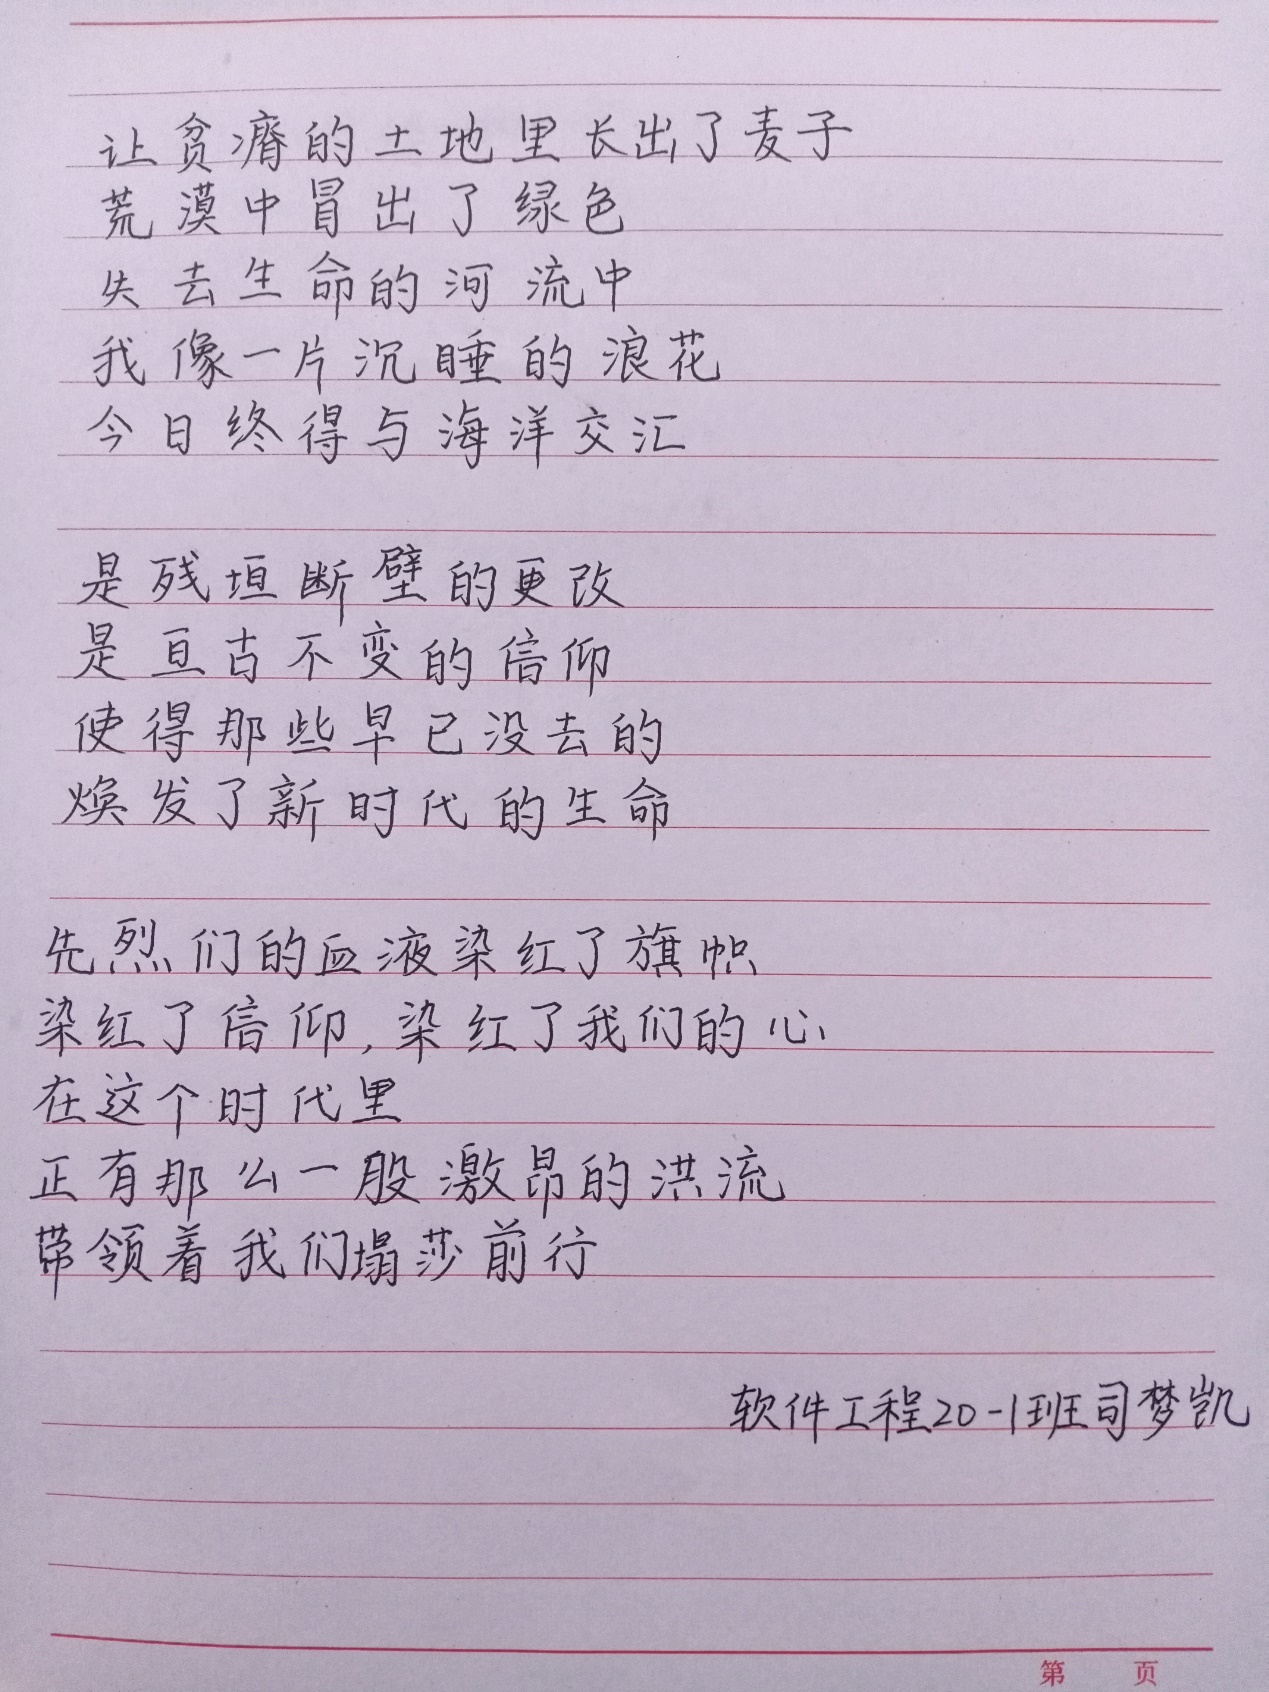 让贫瘠的土地里长出了麦子
荒漠中冒出了绿色
失去生命的河流中
我像一片沉睡的浪花
今日终得与海洋交汇
是残垣断壁的更改
是亘古不变的信仰
使得那些早已没去的
焕发了新时代的生命
先烈们的血液染红了旗帜
染红了信仰,染红了我们的心
在这个时代里
正有那么一股激昂的洪流
带领着我们塌莎前行
软件工程20-1班司梦凯
第 页